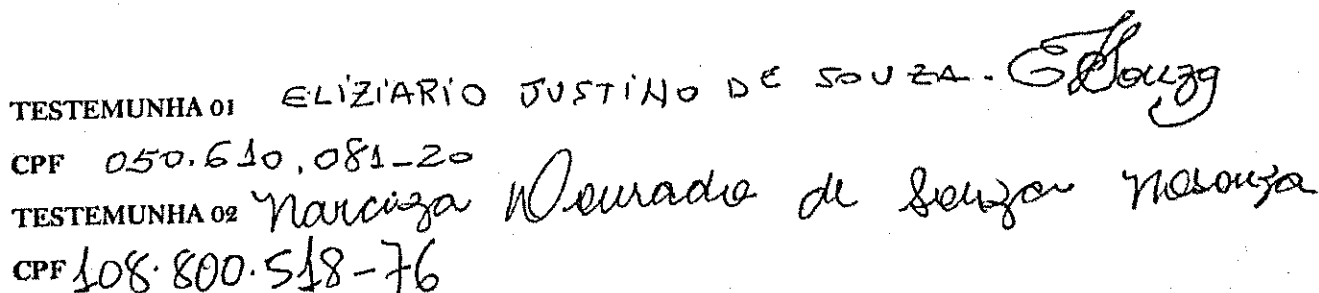 TESTEMUNHA 01 ELIZIARIO JUSTINO DE SOUZA - EJSouza
CPF 050.610.081-20
TESTEMUNHA 02 Narciza Dourado de Souza NDSouza
CPF 108.800.518-76